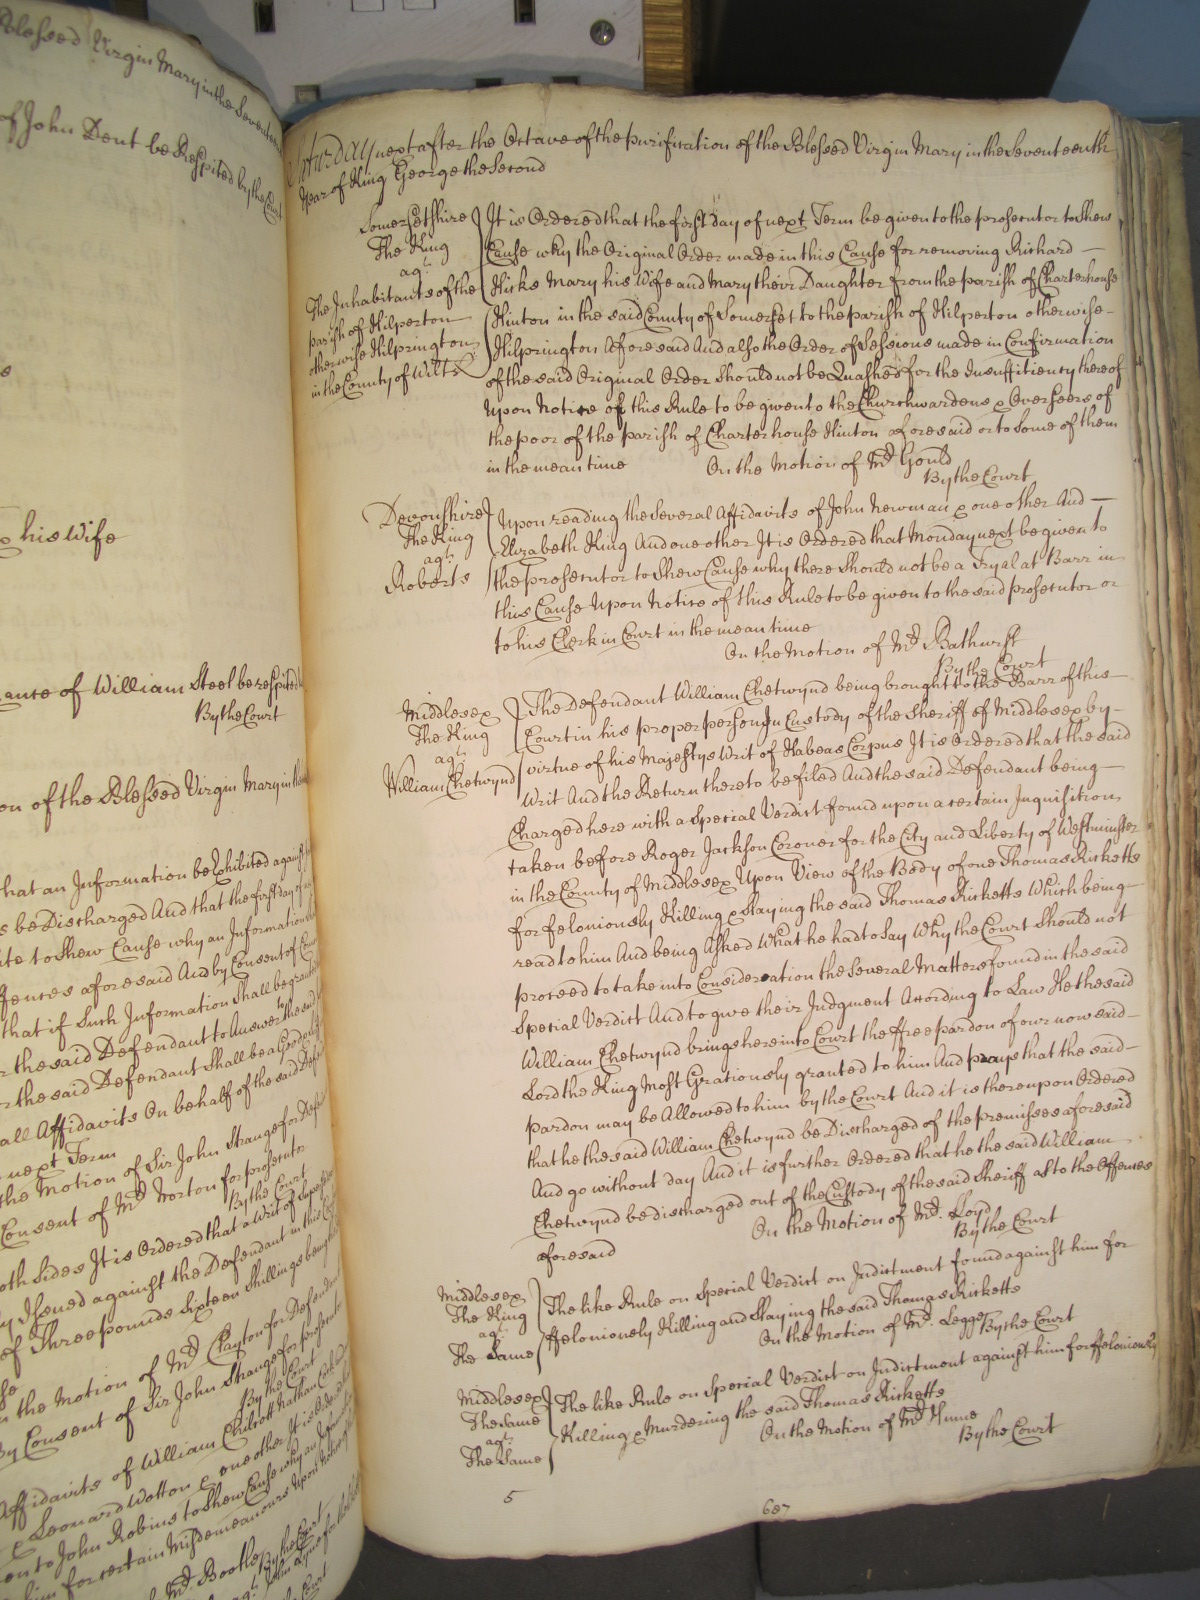 Blessed Virgin Mary in the Seventeenth
of John Dent be Respited by the Court
his Wife
ance of William Steel be respited
By the Court
on of the Blessed Virgin Mary in the
that an Information be Exhibited against
s be Discharged And that the first day of
to Shew Cause why an Information
ffences aforesaid And by Consent of
that if Such Information Shall be granted
the said Defendant to Answer the said
the said Defendant Shall be a Good
all Affidavits On behalf of the said
next Term
the Motion of Sir John Strange for
Consent of Mr. Norton for prosecutor
By the Court
oth Sides It is Ordered that a Writ of
Issued against the Defendant in this
of Three pounds Sixteen Shillings being
the Motion of Mr. Clayton for Defendant
By Consent of Sir John Strange for prosecutor
By the Court
Affidavits of William Chilcott Nathan
& Leonard Wotton & one other It is Ordered
on to John Robins to Shew Cause why an Information
him for certain Misdemeanours Upon Notice
Mr. Bootle By the Court
Saturday next after the Octave of the purification of the Blessed Virgin Mary in the Seventeenth
Year of King George the Second
Somersetshire
The King
agt.
The Inhabitants of the
parish of Hilperton
otherwise Hilprington
in the County of Wilts
It is Ordered that the first day of next Term be given to the prosecutor to Shew
Cause why the Original Order made in this Cause for removing Richard
Hicks Mary his Wife and Mary their Daughter from the parish of Charterhouse
Hinton in the said County of Somerset to the parish of Hilperton otherwise
Hilprington Aforesaid And also the Order of Sessions made in Confirmation
of the said Original Order Should not be Quashed for the Insufficiency thereof
Upon Notice of this Rule to be given to the Churchwardens & Overseers of
the poor of the parish of Charterhouse Hinton aforesaid or to Some of them
in the mean time On the Motion of Mr. Gould
By the Court
Devonshire
The King
agt.
Roberts
Upon reading the Several Affidavits of John Newman & one other And
Elizabeth King And one other It is Ordered that Monday next be given to
the prosecutor to Shew Cause why there Should not be a Tryal at Barr in
this Cause Upon Notice of this Rule to be given to the said prosecutor or
to his Clerk in Court in the mean time
On the Motion of Mr. Bathurst
By the Court
Middlesex
The King
agt.
William Chetwynd
The Defendant William Chetwynd being brought to the Barr of this
Court in his proper person In Custody of the Sheriff of Middlesex by
virtue of his Majestys Writ of Habeas Corpus It is Ordered that the said
Writ And the Return thereto be filed And the said Defendant being
Charged here with a Special Verdict found upon a certain Inquisition
taken before Roger Jackson Coroner for the City and Liberty of Westminster
in the County of Middlesex Upon View of the Body of one Thomas Ricketts
for feloniously Killing & Slaying the said Thomas Ricketts Which being
read to him And being Asked What he had to Say Why the Court Should not
proceed to take into Consideration the Several Matters found in the said
Special Verdict And to give their Judgment According to Law He the said
William Chetwynd brings here into Court the ffree pardon of our now said
Lord the King Most Graciously granted to him And prays that the said
pardon may be Allowed to him by the Court And it is thereupon Ordered
that he the said William Chetwynd be Discharged of the premisses aforesaid
And go without day And it is further Ordered that he the said William
Chetwynd be discharged out of the Custody of the said Sheriff as to the Offences
aforesaid On the Motion of Mr. Loyd
By the Court
Middlesex
The King
agt.
The Same
The like Rule on Special Verdict on Indictment found against him for
ffeloniously Killing and Slaying the said Thomas Ricketts
On the Motion of Mr. Legge By the Court
Middlesex
The Same
agt.
The Same
The like Rule on Special Verdict on Indictment against him for ffeloniously
Killing & Murdering the said Thomas Ricketts
On the Motion of Mr. Hume
By the Court
5
687